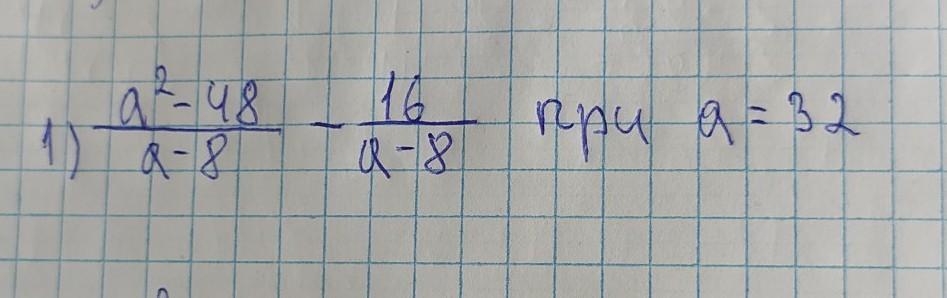 1) (a² - 48)/(a - 8) - 16/(a - 8) при a = 32